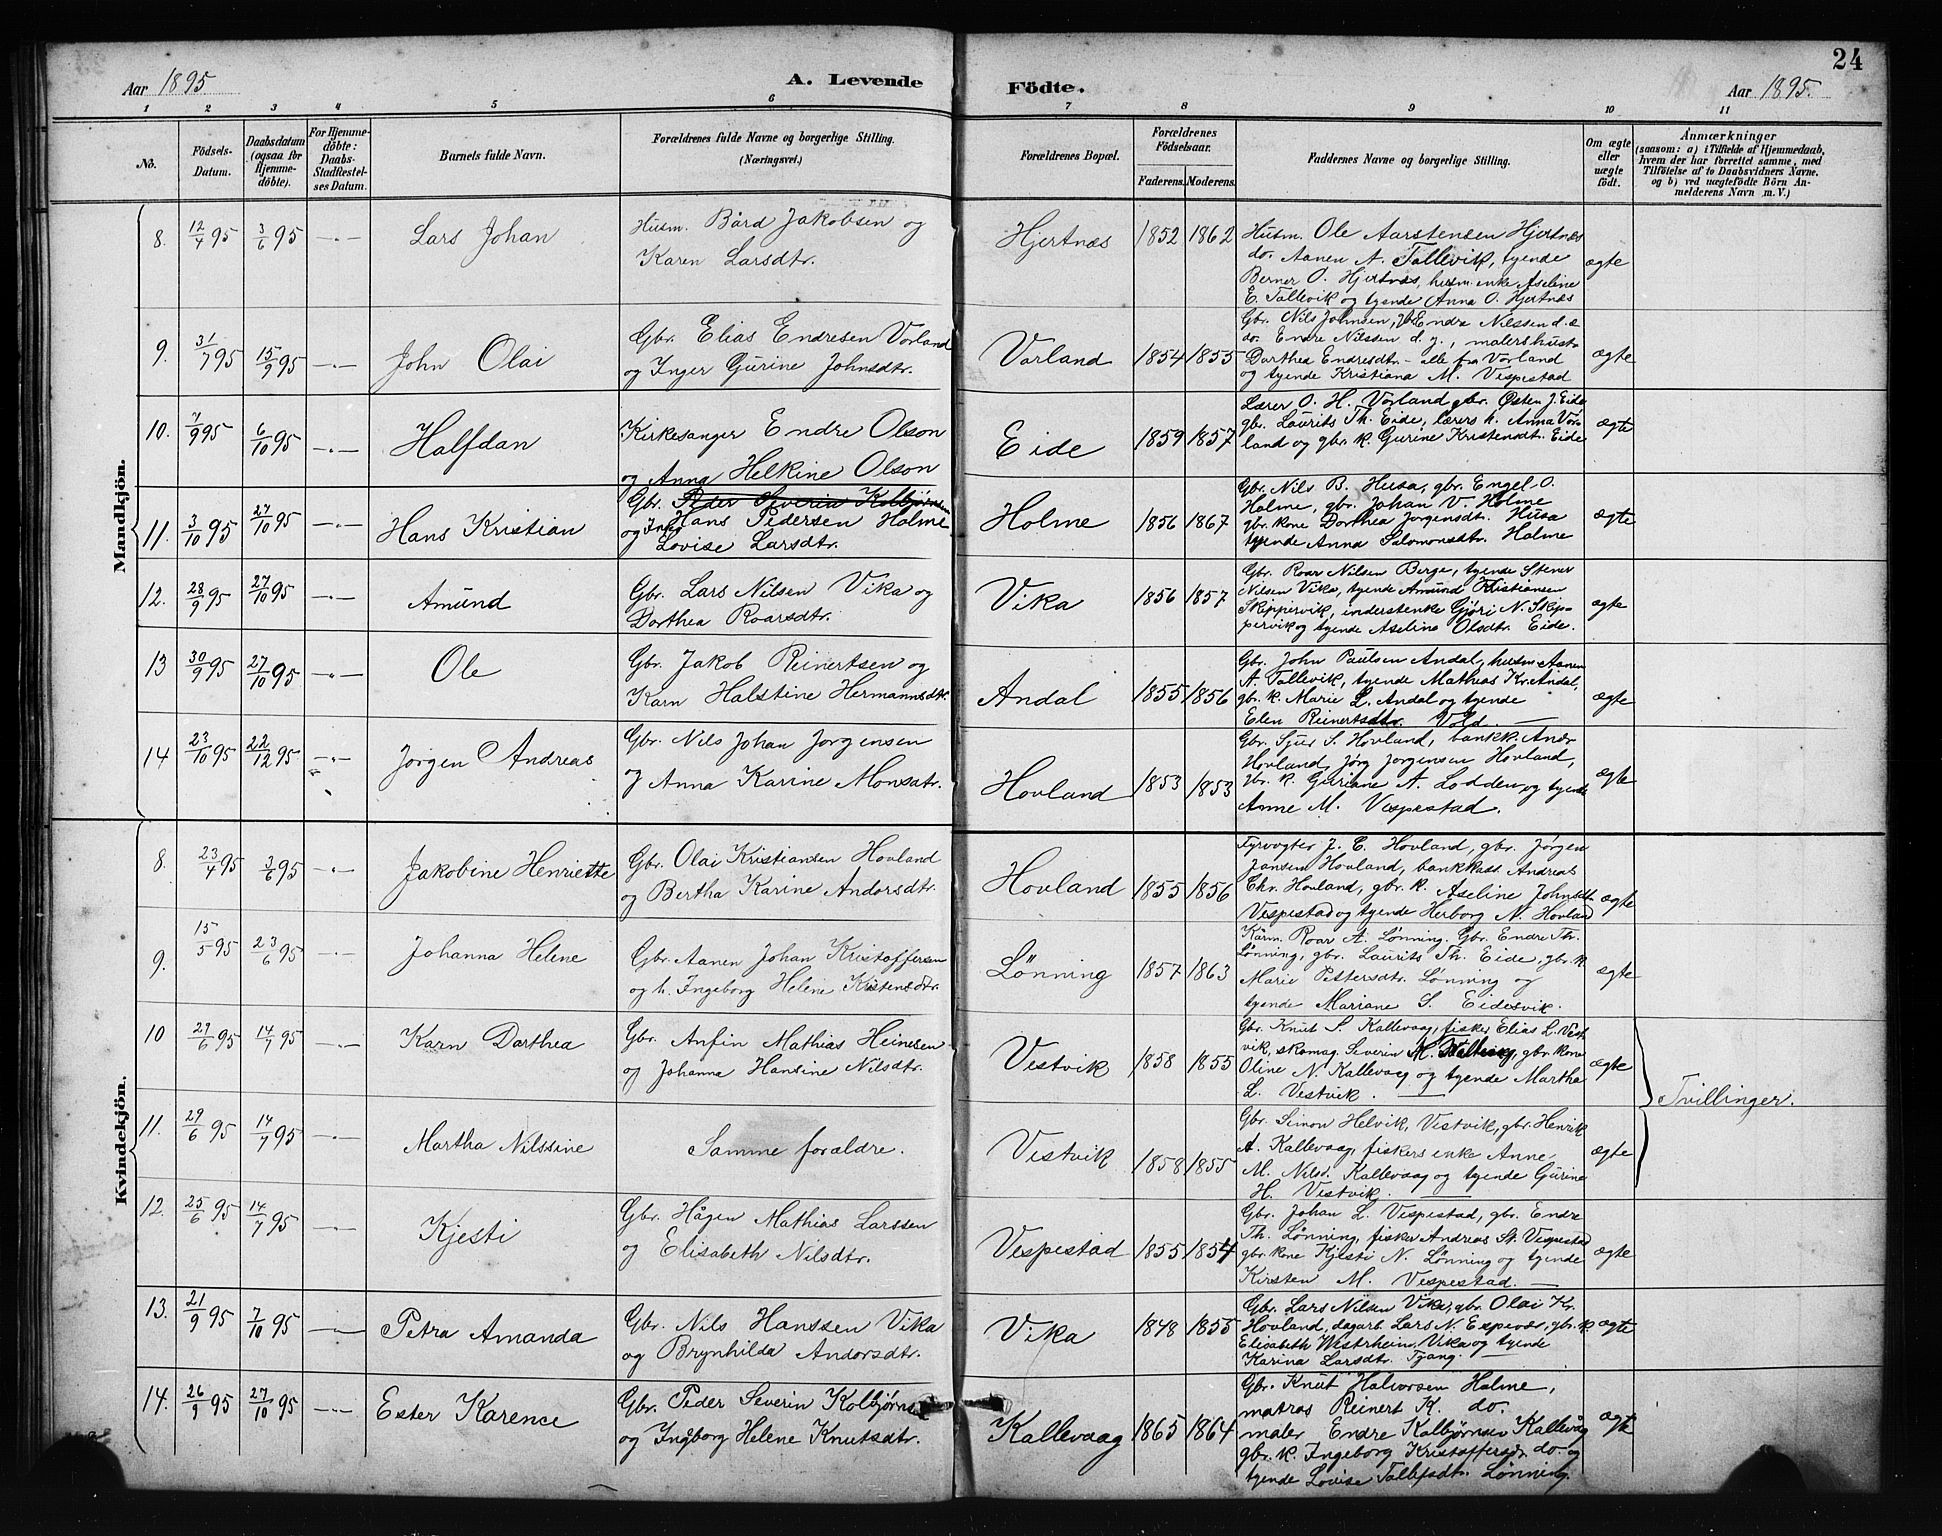 24
Aar 1895
A. Levende
Födte.
Aar 1895.
1 2 3 4 5 6 7 8 9 10 11
No.
Födsels-
Datum.
Daabsdatum
(ogsaa for
Hjemme-
döbte).
For Hjemme-
döbte:
Daabs-
Stadfæstel-
ses Datum.
Barnets fulde Navn.
Forældrenes fulde Navne og borgerlige Stilling.
(Næringsvei.)
Forældrenes Bopæl.
Forældrenes
Födselsaar.
Faderens. Moderens.
Faddernes Navne og borgerlige Stilling.
Om ægte
eller
uægte
födt.
Anmærkninger
(saasom: a) i Tilfælde af Hjemmedaab,
hvem der har forrettet samme, med
Tilföielse af to Daabsvidners Navne.
og b) ved uægtefödte Börn An-
melderens Navn m.V.)
Mandkjön.
8. 12/4 95 3/6 95 —"— Lars Johan
Husm. Bård Jakobsen og
Karen Larsdtr.
Hjertnæs 1852 1862
Husm. Ole Aarstensen Hjertnæs
do. Aanen A. Tallevik, tyende
Berner O. Hjertnæs, husm. enke Aseline
E. Tallevik og tyende Anna O. Hjertnæs
ægte
9. 31/7 95 15/9 95 —"— John Olai
Gbr. Elias Endresen Vorland
og Inger Gurine Johnsdtr.
Vorland 1854 1855
Gbr. Nils Johnsen, Endre Nilssen d. e
do. Endre Nilsen d. y., malershustr.
Dorthea Endresdtr – alle fra Vorland
og tyende Kristiana M. Vespestad
ægte
10. 7/9 95 6/10 95 —"— Halfdan
Kirkesanger Endre Olson
og Anna Helkine Olson
Eide 1859 1857
Lærer O. H. Vorland gbr. Østen J. Eide
gbr. Laurits Th. Eide, lærers k. Anna Vor-
land og gbr. k. Gurine Kristensdtr. Eide
ægte
11. 3/10 95 27/10 95 —"— Hans Kristian
Gbr. Peder Severin Kolbjørnsen
Hans Pedersen Holme
og Inger
Lovise Larsdtr.
Holme 1856 1867
Gbr. Nils B. Husa, gbr. Engel O.
Holme, gbr. Johan V. Holme
gbr. kone Dorthea Jorgensdtr. Husa
tyende Anna Salomonsdtr. Holme
ægte
12. 28/9 95 27/10 95 —"— Amund
Gbr. Lars Nilsen Vika og
Dorthea Roarsdtr.
Vika 1856 1857
Gbr. Roar Nilsen Berge, tyende Stener
Nilsen Vika, tyende Amund Kristiansen
Skippervik, inderstenke Gjøri N. Skip-
pervik og tyende Aseline Olsdtr. Eide.
ægte
13 30/9 95 27/10 95 —"— Ole
Gbr. Jakob Reinertsen og
Karn Halstine Hermannsdtr.
Andal 1855 1856
Gbr. John Paulsen Andal, husm. Aanen
A. Tallevik, tyende Mathias Kr. Andal,
gbr. k. Marie L. Andal og tyende
Elen Reinertsdtr. Vold. —
ægte
14 23/10 95 22/12 95 —"— Jørgen Andreas
Gbr. Nils Johan Jorgensen
og Anna Karine Monsdtr.
Hovland 1853 1853
Gbr. Sjur S. Hovland, bankk. Andr.
Hovland, Jørg Jorgensen Hovland,
gbr. k. Guriane A. Lodden og tyende
Anne M. Vespestad.
ægte
Kvindekjön.
8. 23/4 95 3/6 95 —"— Jakobine Henriette
Gbr. Olai Kristiansen Hovland
og Bertha Karine Andorsdtr.
Hovland 1855 1856
Fyrvogter J. C. Hovland, gbr. Jørgen
Jansen Hovland, bankkass. Andreas
Chr. Hovland, gbr. k. Aseline Johnsdtr
Vespestad og tyende Herborg N. Hovland
ægte
9. 15/5 95 23/6 95 —"— Johanna Helene
Gbr. Aanen Johan Kristoffersen
og h. Ingeborg Helene Kristensdtr.
Lønning 1857 1863
Kårm. Roar A. Lønning. Gbr. Endre Th.
Lønning, gbr. Laurits Th. Eide, gbr. k
Marie Pettersdtr. Lønning og
tyende Mariane S. Eidesvik.
ægte
10 29/6 95 14/7 95 —"— Karn Dorthea
Gbr. Anfin Mathias Heinesen
og Johanna Hansine Nilsdtr.
Vestvik 1858 1855
Gbr. Knut S. Kallevaag, fisker Elias L. Vest
vik, skomag. Severin M. gbr. kone
Oline N. Kallevaag og tyende Martha
L. Vestvik. —
ægte
Tvillinger.
11. 29/6 95 14/7 95 —"— Martha Nilssine
Samme foræld​re.
Vestvik 1858 1855
Gbr. Simon Helvik, Vestvik, gbr. Henrik
A. Kallevaag, fiskers enke Anne
M. Nilsd. Kallevaag og tyende Gurine
H. Vestvik. —
ægte
12. 25/6 95 14/7 95 —"— Kjesti
Gbr. Hågen Mathias Larssen
og Elisabeth Nilsdtr.
Vespestad 1855 1854
Gbr. Johan L. Vespestad, gbr. Endre
Th. Lønning, fisker Andreas St. Vespestad
gbr. kone Kjesti N. Lønning og tyende
Kirsten M. Vespestad. —
ægte
13. 21/9 95 7/10 95 —"— Petra Amanda
Gbr. Nils Hanssen Vika
og Brynhilda Andorsdtr.
Vika 1848 1855
Gbr. Lars Nilsen Vika, gbr. Olai Kr.
Hovland, dagarb. Lars N. Espevær, gbr. k.
Elisabeth Westrheim, Vika og tyende
Karina Larsdtr. Tjong.
ægte
14. 26/9 95 27/10 95 —"— Ester Karence
Gbr. Peder Severin Kolbjørns
og Ingborg Helene Knutsdtr.
Kallevaag 1865 1864
Gbr. Knut Halvorsen Holme,
matros Reinert K. do.
maler Endre Kolbjørnsen Kallevåg
gbr. k. Ingeborg Kristoffersd. do. og
tyende Lovise Tollefsdtr. Lønning.
ægte